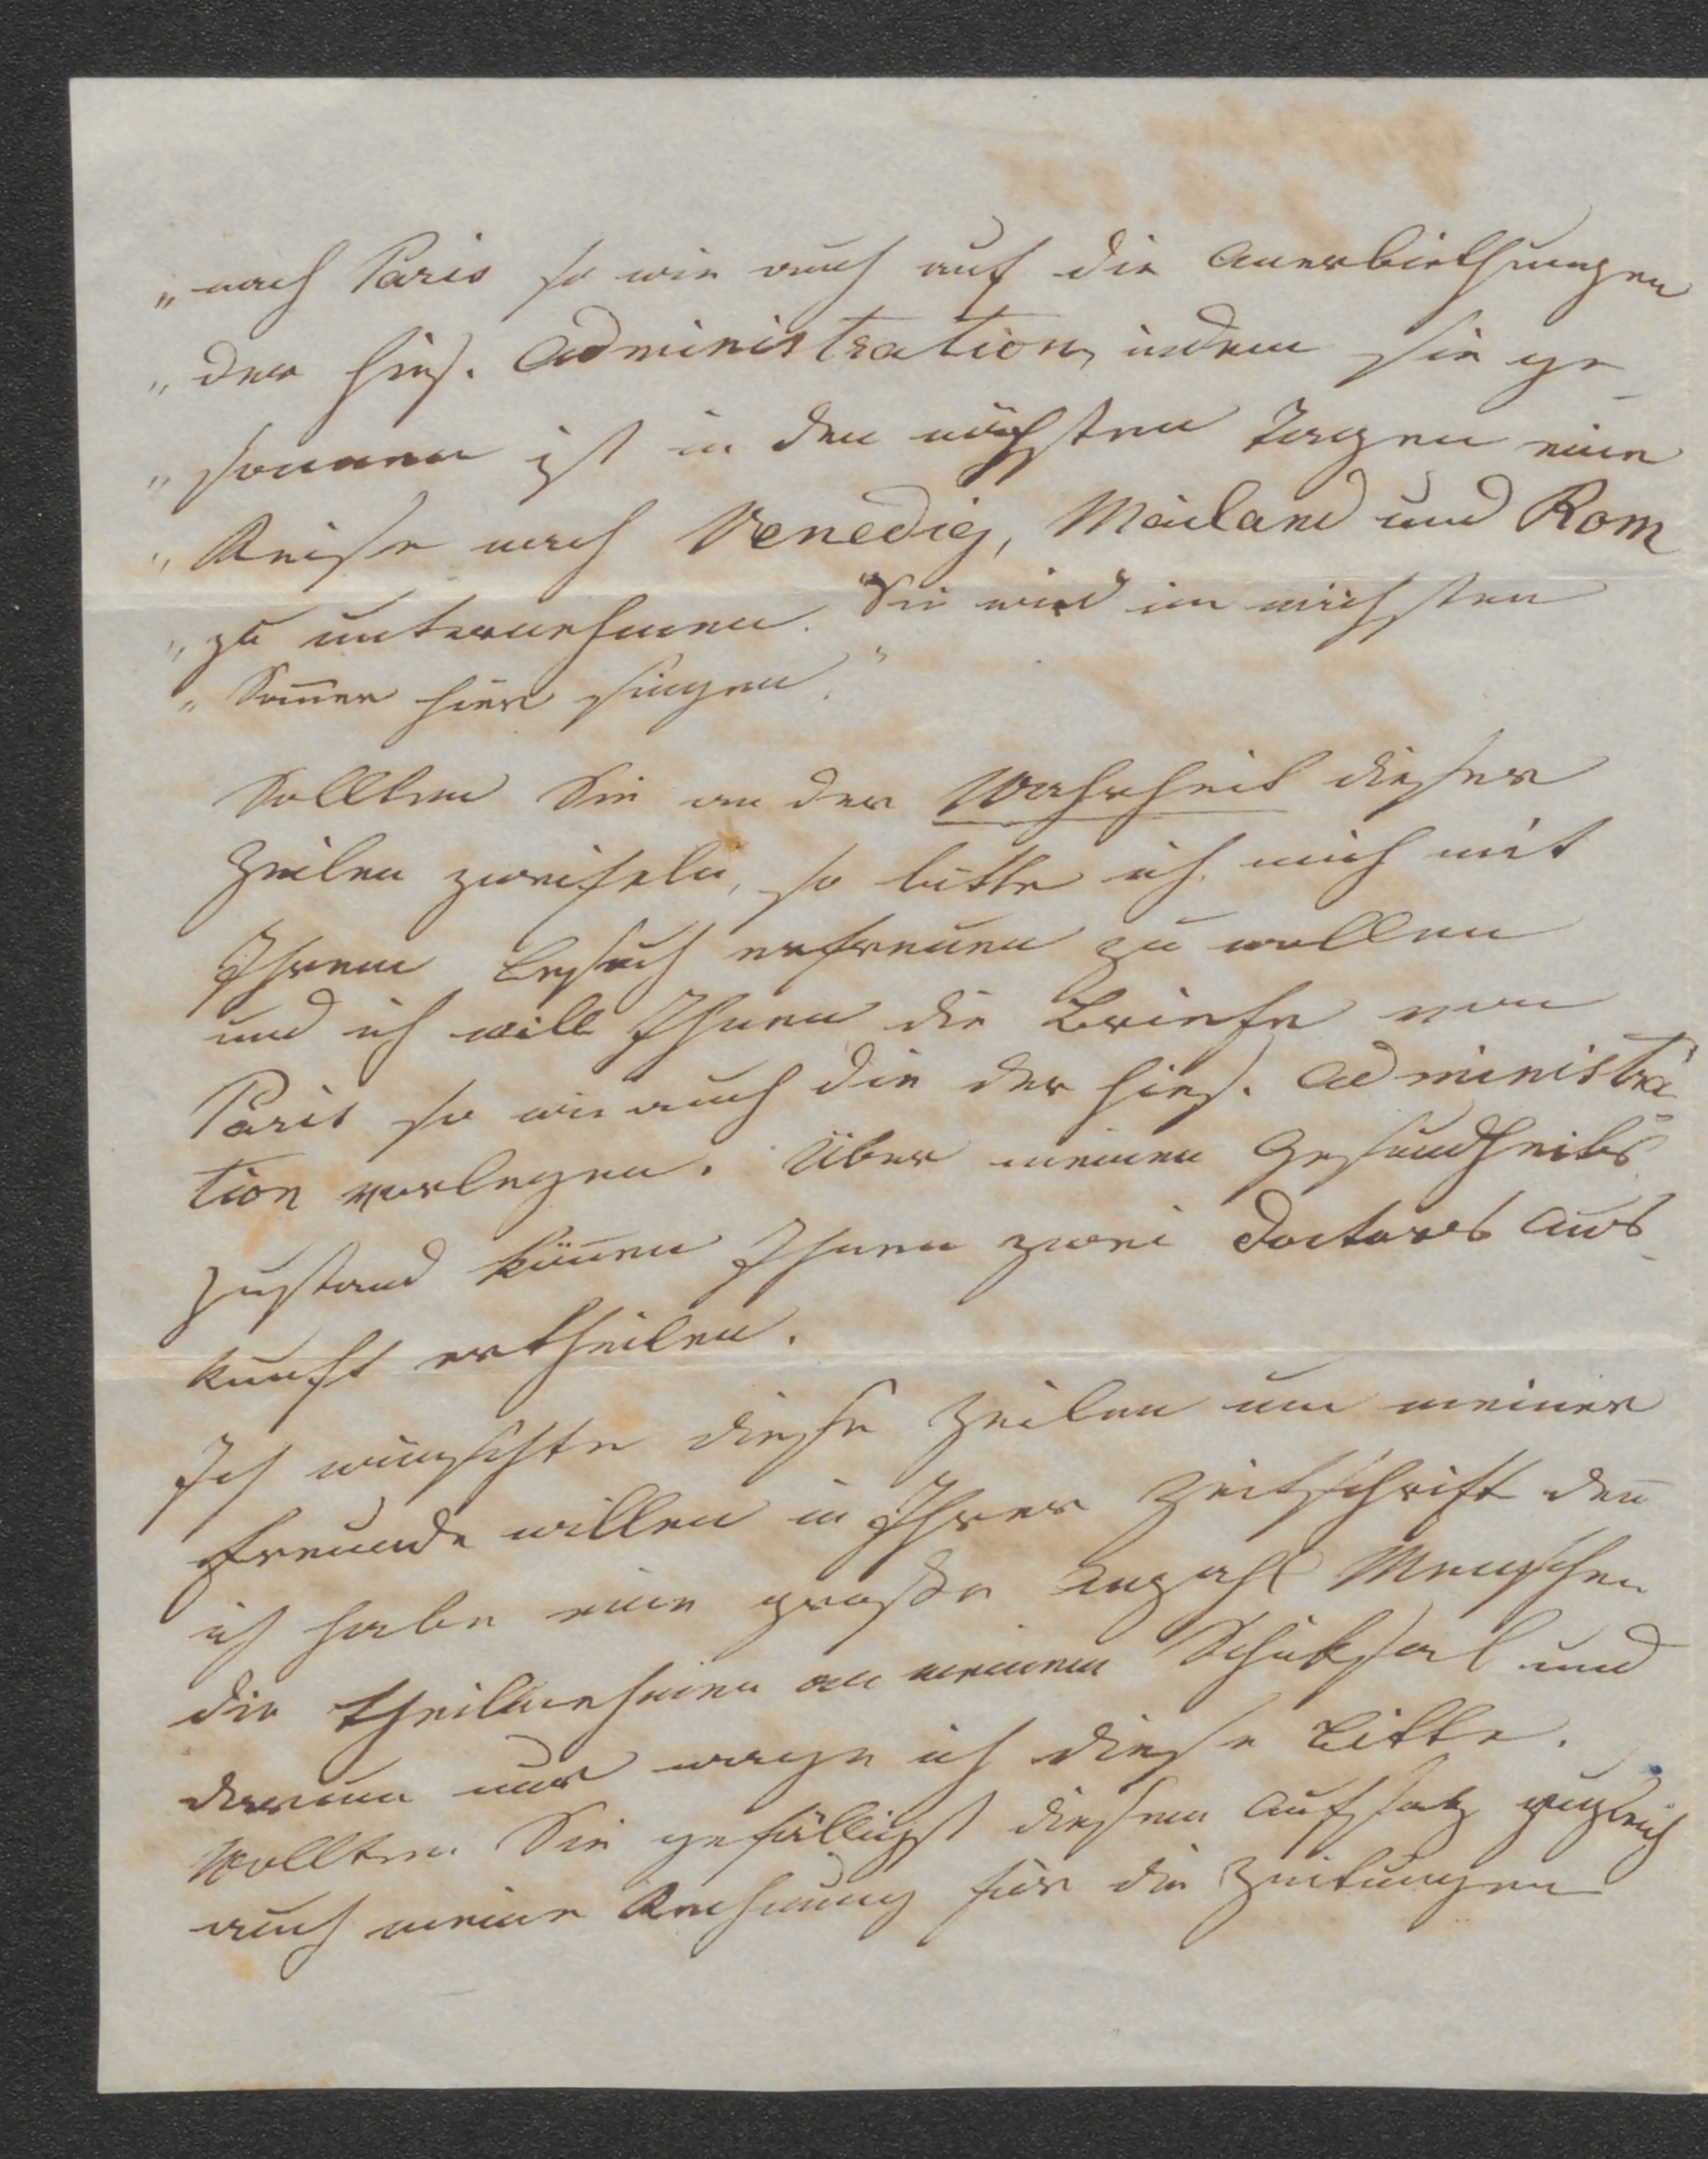 „nach Paris so wie auch auf die Anerbiethungen
„der hies. Administration, indem sie ge-
„sonnen ist in den nächsten Tagen eine
„Reise nach Venedig, Mailand und Rom
„zu unternehmen. Sie wird im nächsten
„Som̅er hier singen."
Sollten Sie an der Wahrheit dieser
Zeilen zweifeln, so bitte ich mich mit
Ihrem Besuch erfreuen zu wollen
und ich will Ihnen die Briefe von
Paris so wie auch die der hies. Administra-
tion vorlegen. Über meinen Gesundheits
zustand kön̅en Ihnen zwei Doctores Aus-
kunft ertheilen.
Ich wünschte diese Zeilen um meiner
Freunde willen in Ihrer Zeitschrift den̅
ich habe eine große Anzahl Menschen
die theilnehmen an meinem Schicksal und
darum nur wage ich diese Bitte.
Wollten Sie gefälligst diesem Aufsatz zugleich
auch meine Rechnung für die Zeitungen